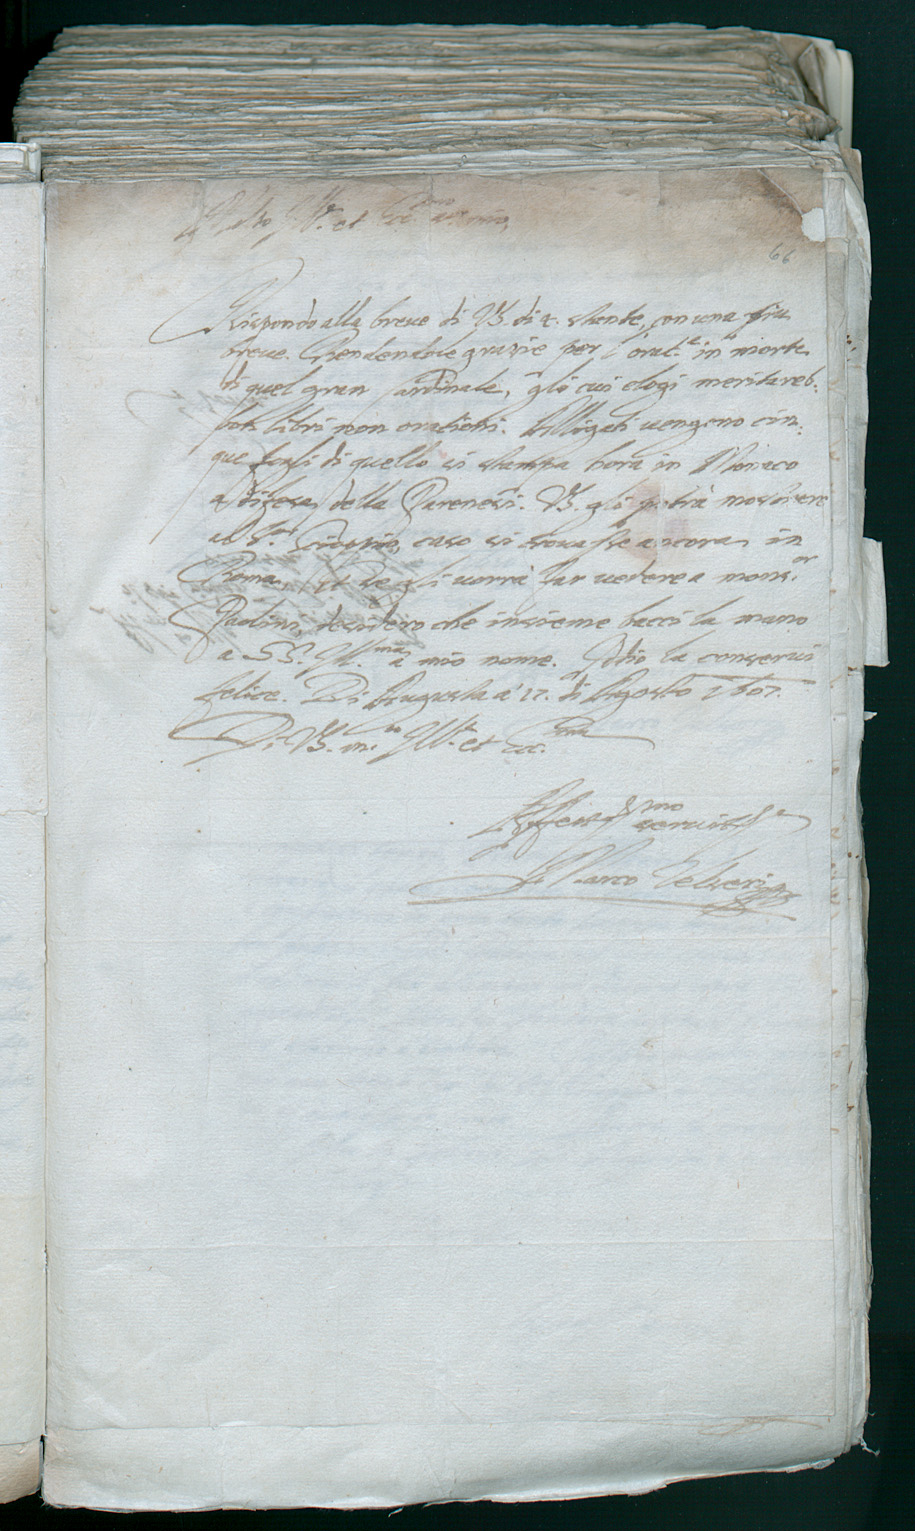 Molto Ill.re et Ecc.mo S.r mio,
66
Rispondo alla breve di VS. di 4. stante, con una piu
breve. Rendendole grazie per l'orat.e in morte
di quel gran Cardinale, gli cui elogi meritareb-
bon libri non orationi. Alligati vengono cin-
que fogli di quello si stampa hora in Monaco
a difesa della Parenesi. VS. gli potrà mostrare
al S.r Scioppio, caso si trovasse ancora in
Roma. Et se gli vorrà far vedere a mons.or
Paolini, desidero che insieme bacci la mano
a SS. Ill.ma a mio nome. Iddio la conservi
felice. Di Augusta a' 17. di Agosto 1607.
Di VS. m.to Ill.re et Ecc.ma
Affett.mo servit.e
Marco Velseri